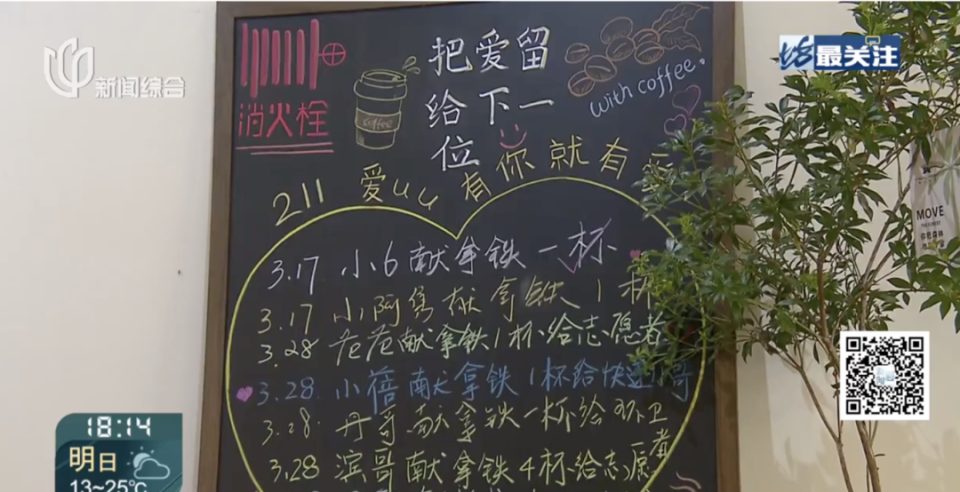 新闻综合
坊最关注
消火栓
coffee
把爱留
给下一
位
with coffee.
211 爱uu 有你就有爱
3.17 小6献拿铁一杯
3.17 小阿隽献拿铁1杯
3.28 苍苍献拿铁1杯给志愿者
3.28 小蓓献拿铁1杯给快递哥
3.28 丹哥献拿铁一杯给环卫
3.28 滨哥献拿铁4杯给志愿者
MOVE
18:14
明日
13~25℃